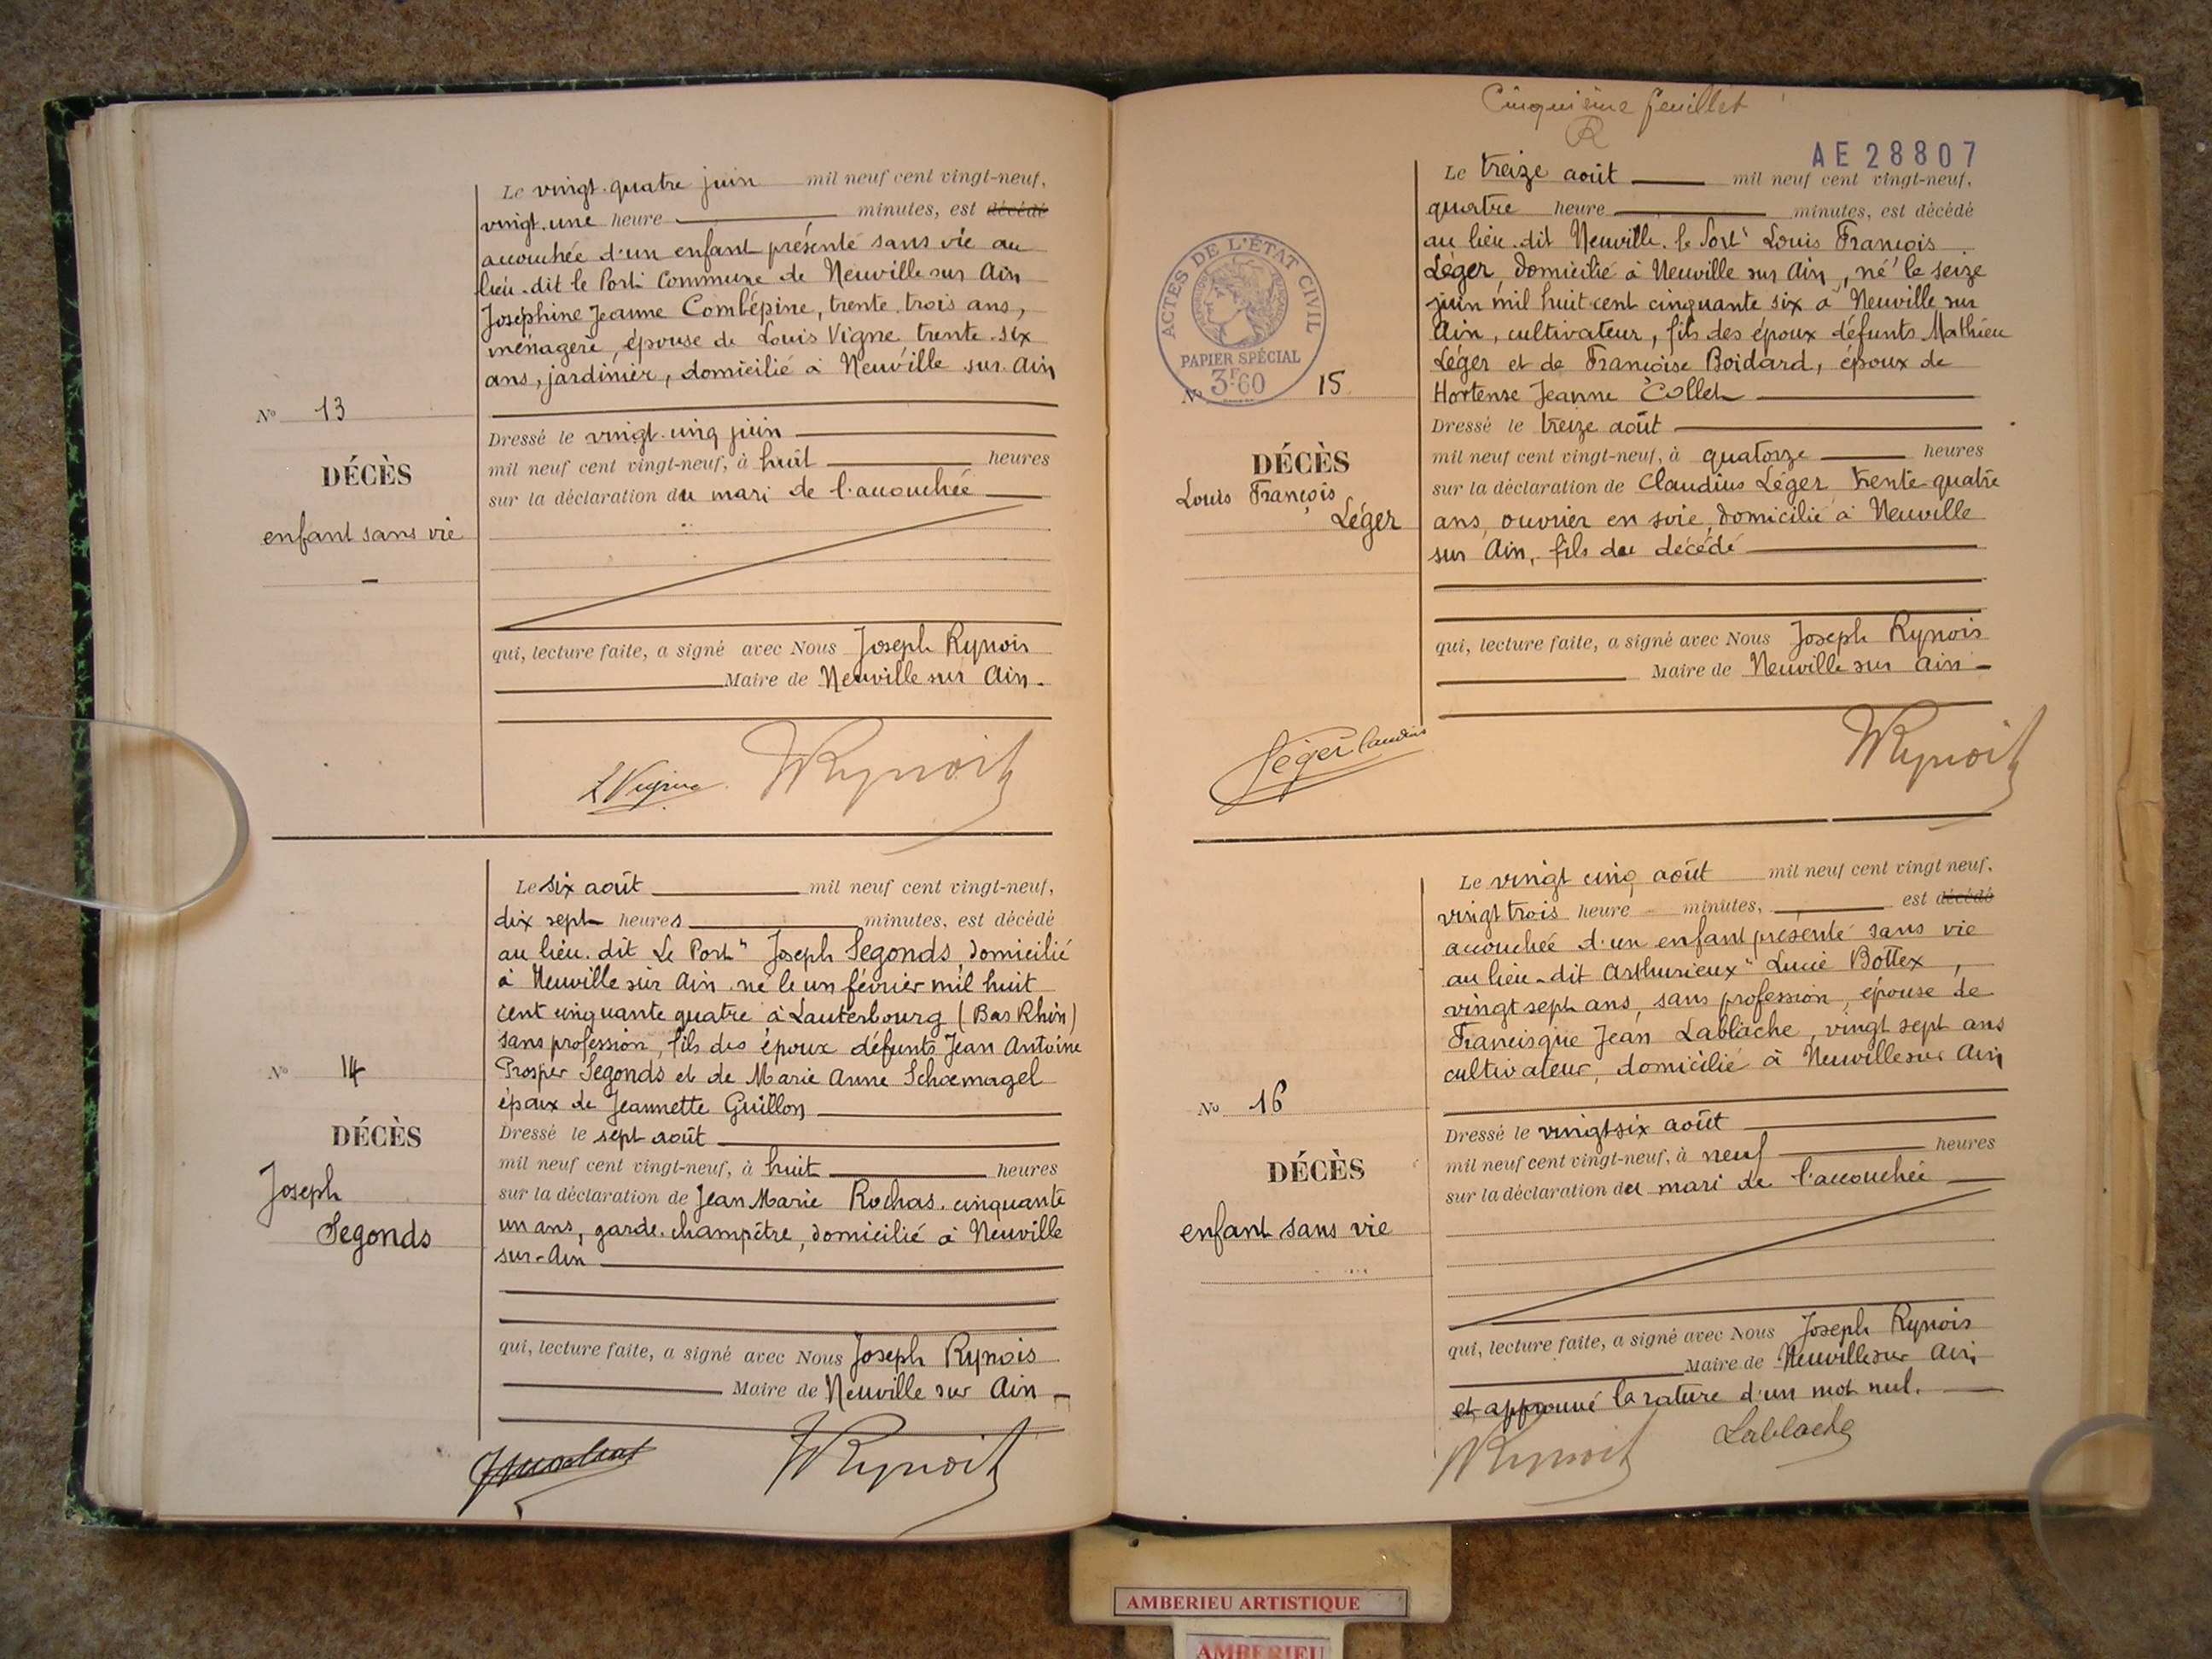 Le vingt-quatre juin mil neuf cent vingt-neuf,
vingt-une heure minutes, est décédé
accouchée d'un enfant présenté sans vie au
lieu-dit le Port Commune de Neuville sur Ain
Joséphine Jeanne Combépine, trente-trois ans,
ménagère, épouse de Louis Vigne trente-six
ans, jardinier, domicilié à Neuville sur Ain
N° 13
DÉCÈS
enfant sans vie
Dressé le vingt-cinq juin
mil neuf cent vingt-neuf, à huit heures
sur la déclaration du mari de l'accouchée
qui, lecture faite, a signé avec Nous Joseph Rynois
Maire de Neuville sur Ain.
L Vigne Rynois
Le six août mil neuf cent vingt-neuf,
dix sept heures minutes, est décédé
au lieu-dit Le Port" Joseph Segonds, domicilié
à Neuville sur Ain né le un février mil huit
cent cinquante quatre à Lauterbourg (Bas Rhin)
sans profession, fils des époux défunts Jean Antoine
Prosper Segonds et de Marie Anne Schoemagel
époux de Jeannette Guillon
N° 14
DÉCÈS
Joseph
Segonds
Dressé le sept août
mil neuf cent vingt-neuf, à huit heures
sur la déclaration de Jean Marie Rochas, cinquante
un ans, garde-champêtre, domicilié à Neuville
sur-Ain
qui, lecture faite, a signé avec Nous Joseph Rynois
Maire de Neuville sur Ain
Rynois
Cinquième feuillet
R
AE 28807
Le treize août mil neuf cent vingt-neuf,
quatre heure minutes, est décédé
au lieu-dit Neuville-le Port" Louis François
Léger, domicilié à Neuville sur Ain, né le seize
juin mil huit cent cinquante six à Neuville sur
Ain, cultivateur, fils des époux défunts Mathieu
Léger et de Françoise Boidard, époux de
Hortense Jeanne Collet
ACTES DE L'ÉTAT CIVIL
PAPIER SPÉCIAL
3F60
N° 15
DÉCÈS
Louis François
Léger
Dressé le treize août
mil neuf cent vingt-neuf, à quatorze heures
sur la déclaration de Claudius Léger trente-quatre
ans, ouvrier en soie, domicilié à Neuville
sur Ain, fils du décédé
qui, lecture faite, a signé avec Nous Joseph Rynois
Maire de Neuville sur Ain
Léger Claudius Rynois
Le vingt cinq août mil neuf cent vingt neuf,
vingt trois heure minutes, est décédé
accouchée d'un enfant présenté sans vie
au lieu-dit Arthurieux" Lucie Bottex,
vingt sept ans, sans profession, épouse de
Francisque Jean Lablache, vingt sept ans
cultivateur, domicilié à Neuville sur Ain
N° 16
DÉCÈS
enfant sans vie
Dressé le vingt-six août
mil neuf cent vingt-neuf, à neuf heures
sur la déclaration du mari de l'accouchée
qui, lecture faite, a signé avec Nous Joseph Rynois
Maire de Neuville sur Ain
et approuvé la rature d'un mot nul.
Rynois Lablache
AMBERIEU ARTISTIQUE
AMBERIEU